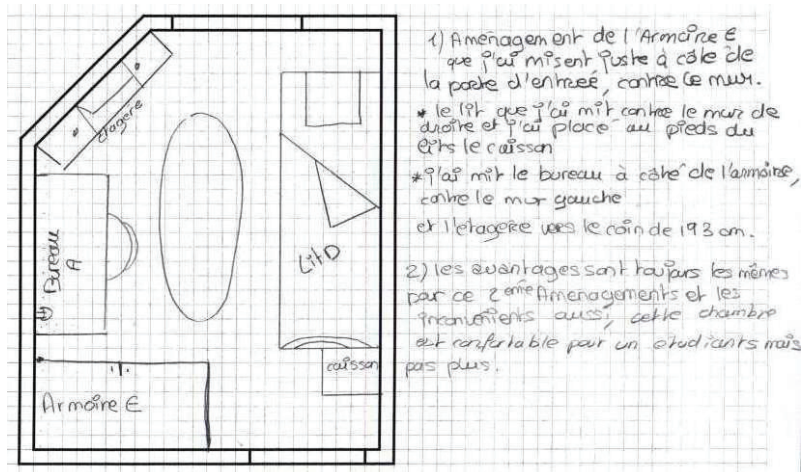 étagère
Bureau
A
Lit D
caisson
Armoire E
1) Aménagement de l'Armoire E
que j'ai misent juste à côté de
la porte d'entreé, contre le mur.
* le lit que j'ai mit contre le mur de
droite et j'ai placé au pieds du
lits le caisson
* j'ai mit le bureau à côté de l'armoire,
contre le mur gauche
et l'etagere vers le coin de 193 cm.
2) les avantages sont toujours les mêmes
par ce 2eme Amenagements et les
inconvenients aussi, cette chambre
est confortable pour un etudiants mais
pas plus.